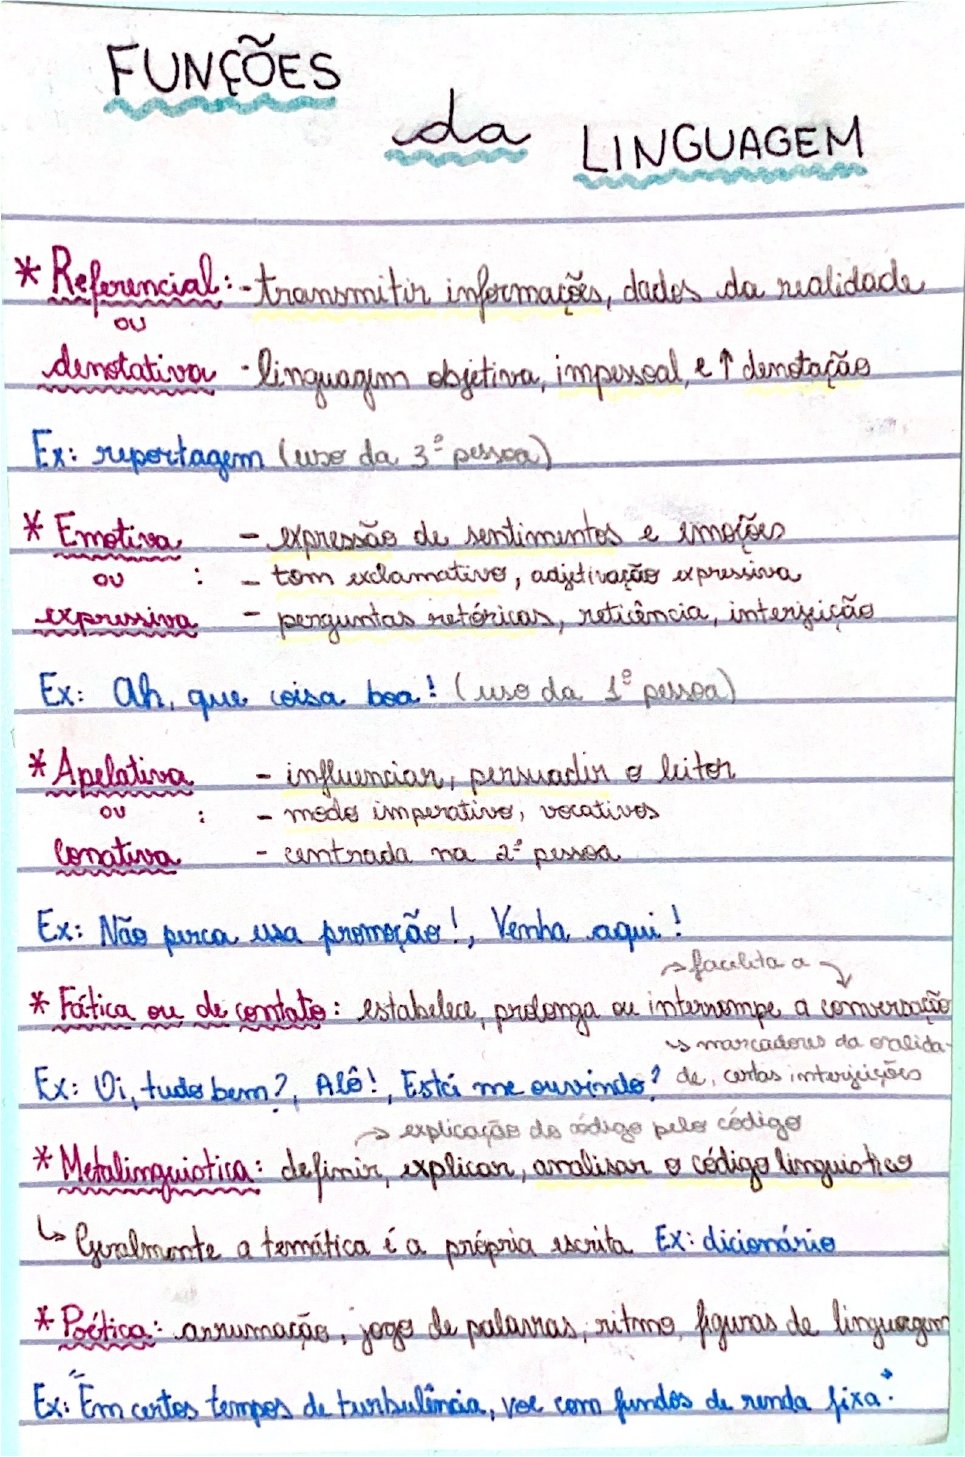 FUNÇÕES
da LINGUAGEM
* Referencial: - transmitir informações, dados da realidade
ou
denotativa - linguagem objetiva, impessoal, e ↑ denotação
Ex: reportagem (uso da 3ª pessoa)
* Emotiva - expressão de sentimentos e emoções
ou : - tom exclamativo, adjetivação expressiva
expressiva - perguntas retóricas, reticência, interjeição
Ex: Ah, que coisa boa! (uso da 1ª pessoa)
* Apelativa - influenciar, persuadir o leitor
ou : - modo imperativo, vocativos
Conativa - centrada na 2ª pessoa
Ex: Não perca essa promoção!, Venha aqui!
→ facilita a
* Fática ou de contato: estabelece, prolonga ou interrompe a conversação
↳ marcadores da oralida-
Ex: Oi, tudo bem?, Alô!, Está me ouvindo? de, certas interjeições
→ explicação do código pelo código
* Metalinguística: definir, explicar, analisar o código linguístico
↳ Geralmente a temática é a própria escrita Ex: dicionário
* Poética: arrumação, jogo de palavras, ritmo, figuras de linguagem
Ex: "Em certos tempos de turbulência, voe com fundos de renda fixa".